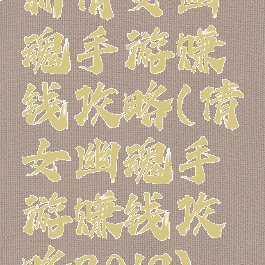 新倩女幽
魂手游赚
钱攻略(倩
女幽魂手
游赚钱攻
略2019)